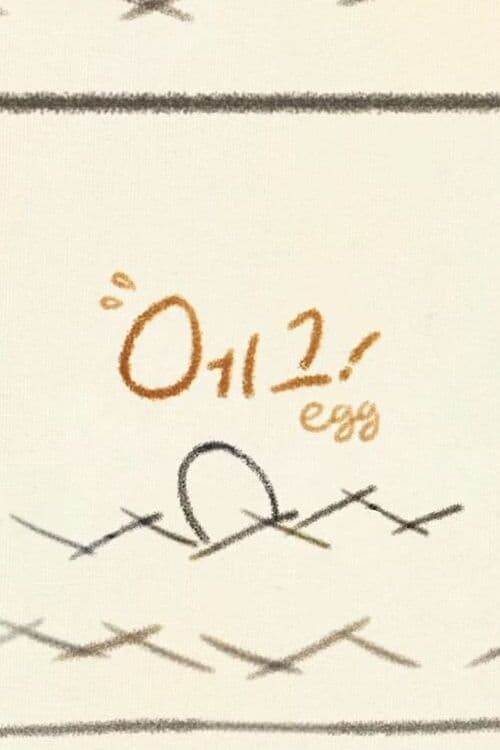 에그!
egg